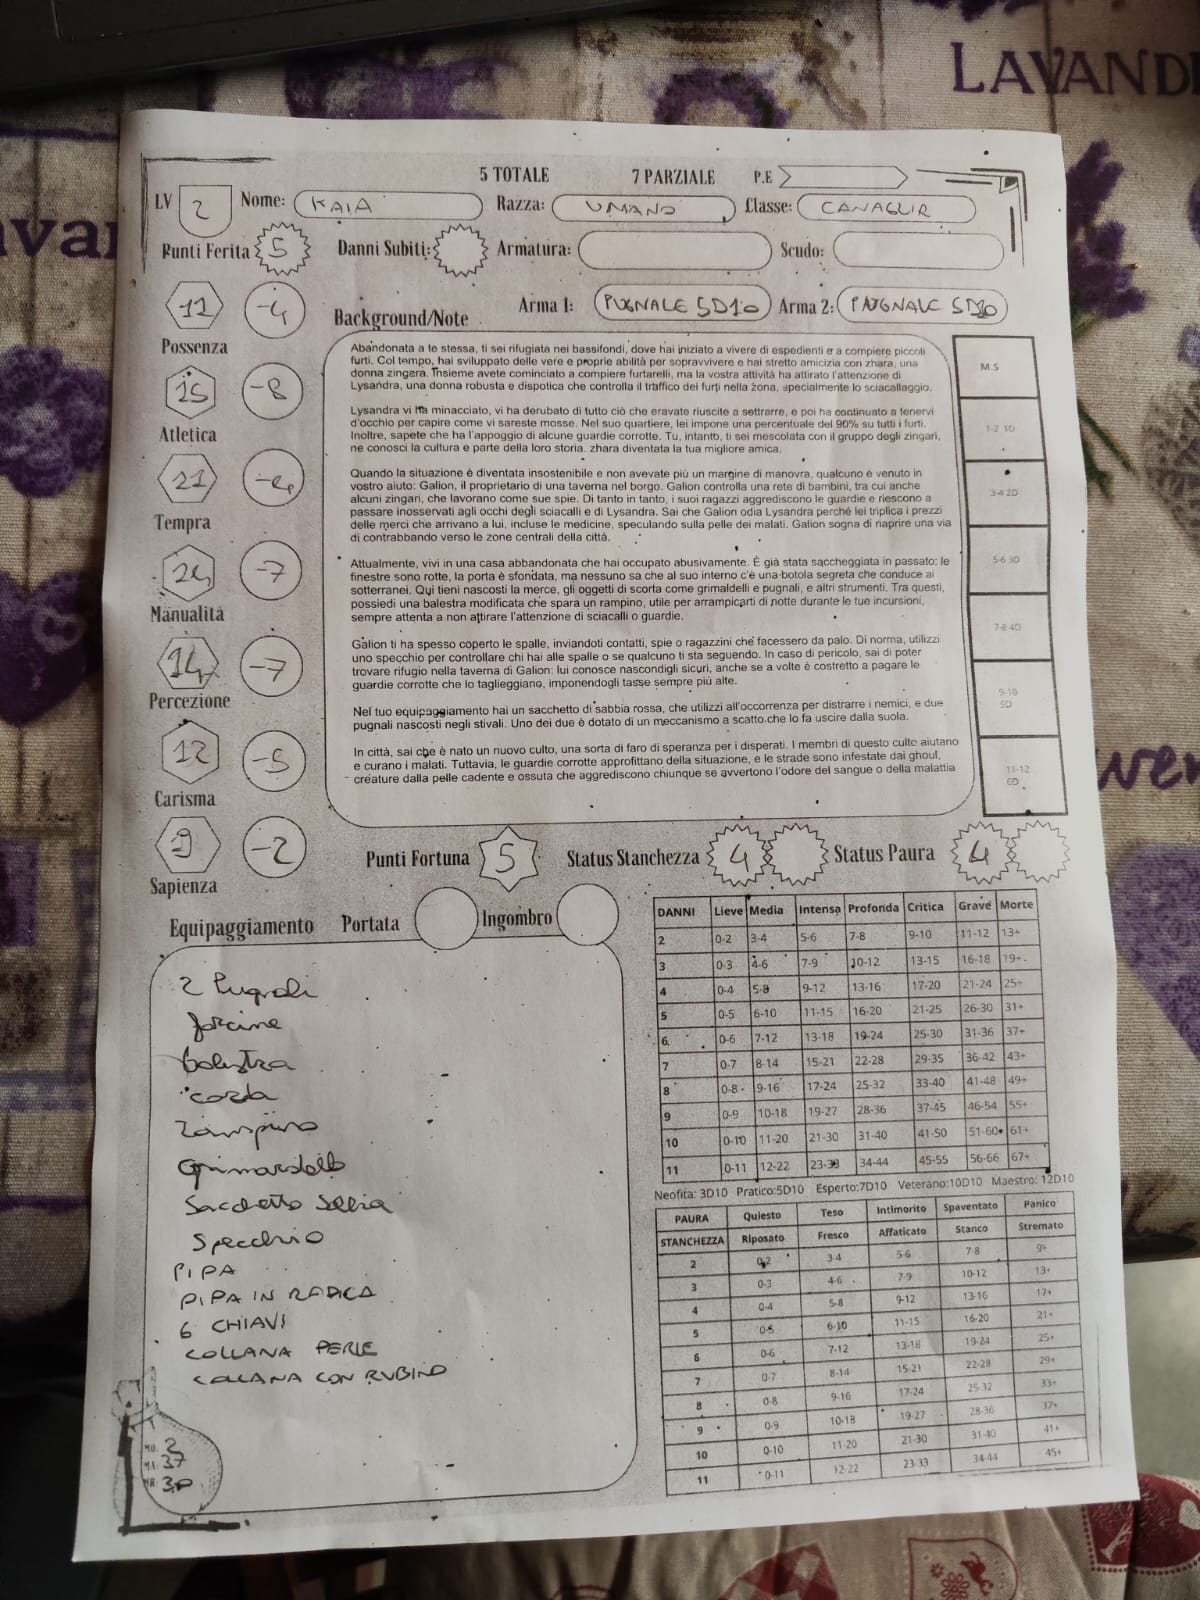 LAVAND
5 TOTALE 7 PARZIALE P.E
LV 2 Nome: KAIA Razza: UMANO Classe: CANAGLIA
Punti Ferita 5 Danni Subiti: Armatura: Scudo:
Arma 1: PUGNALE 5D10 Arma 2: PUGNALE 5D10
12 -4
Possenza
25 -8
Atletica
21
Tempra
24 -7
Manualità
14 -7
Percezione
12 -5
Carisma
9 -2
Sapienza
Background/Note
Abandonata a te stessa, ti sei rifugiata nei bassifondi, dove hai iniziato a vivere di espedienti e a compiere piccoli
furti. Col tempo, hai sviluppato delle vere e proprie abilità per sopravvivere e hai stretto amicizia con zhara, una
donna zingera. Insieme avete cominciato a compiere furtarelli, ma la vostra attività ha attirato l'attenzione di
Lysandra, una donna robusta e dispotica che controlla il traffico dei furti nella zona, specialmente lo sciacallaggio.
Lysandra vi ha minacciato, vi ha derubato di tutto ciò che eravate riuscite a settrarre, e poi ha continuato a tenervi
d'occhio per capire come vi sareste mosse. Nel suo quartiere, lei impone una percentuale del 90% su tutti i furti.
Inoltre, sapete che ha l'appoggio di alcune guardie corrotte. Tu, intanto, ti sei mescolata con il gruppo degli zingari,
ne conosci la cultura e parte della loro storia. zhara diventata la tua migliore amica.
Quando la situazione è diventata insostenibile e non avevate più un margine di manovra, qualcuno è venuto in
vostro aiuto: Galion, il proprietario di una taverna nel borgo. Galion controlla una rete di bambini, tra cui anche
alcuni zingari, che lavorano come sue spie. Di tanto in tanto, i suoi ragazzi aggrediscono le guardie e riescono a
passare inosservati agli occhi degli sciacalli e di Lysandra. Sai che Galion odia Lysandra perché lei triplica i prezzi
delle merci che arrivano a lui, incluse le medicine, speculando sulla pelle dei malati. Galion sogna di riaprire una via
di contrabbando verso le zone centrali della città.
Attualmente, vivi in una casa abbandonata che hai occupato abusivamente. È già stata saccheggiata in passato: le
finestre sono rotte, la porta è sfondata, ma nessuno sa che al suo interno c'è una botola segreta che conduce ai
sotterranei. Qui tieni nascosti la merce, gli oggetti di scorta come grimaldelli e pugnali, e altri strumenti. Tra questi,
possiedi una balestra modificata che spara un rampino, utile per arrampicarti di notte durante le tue incursioni,
sempre attenta a non attirare l'attenzione di sciacalli o guardie.
Galion ti ha spesso coperto le spalle, inviandoti contatti, spie o ragazzini che facessero da palo. Di norma, utilizzi
uno specchio per controllare chi hai alle spalle o se qualcuno ti sta seguendo. In caso di pericolo, sai di poter
trovare rifugio nella taverna di Galion: lui conosce nascondigli sicuri, anche se a volte è costretto a pagare le
guardie corrotte che lo taglieggiano, imponendogli tasse sempre più alte.
Nel tuo equipaggiamento hai un sacchetto di sabbia rossa, che utilizzi all'occorrenza per distrarre i nemici, e due
pugnali nascosti negli stivali. Uno dei due è dotato di un meccanismo a scatto che lo fa uscire dalla suola.
In città, sai che è nato un nuovo culto, una sorta di faro di speranza per i disperati. I membri di questo culto aiutano
e curano i malati. Tuttavia, le guardie corrotte approfittano della situazione, e le strade sono infestate dai ghoul,
creature dalla pelle cadente e ossuta che aggrediscono chiunque se avvertono l'odore del sangue o della malattia
M.S
1-2 1D
3-4 2D
5-6 3D
7-8 4D
9-10
5D
11-12
6D
Punti Fortuna 5 Status Stanchezza 4 Status Paura 4
Equipaggiamento Portata Ingombro
2 Pugnali
balestra
corda
rampino
Sacchetto Sabbia
Specchio
PIPA
PIPA IN RADICA
6 CHIAVI
COLLANA PERLE
COLLANA CON RUBINO
2
37
DANNI Lieve Media Intensa Profonda Critica Grave Morte
2 0-2 3-4 5-6 7-8 9-10 11-12 13+
3 0-3 4-6 7-9 10-12 13-15 16-18 19+
4 0-4 5-8 9-12 13-16 17-20 21-24 25+
5 0-5 6-10 11-15 16-20 21-25 26-30 31+
6 0-6 7-12 13-18 19-24 25-30 31-36 37+
7 0-7 8-14 15-21 22-28 29-35 36-42 43+
8 0-8 9-16 17-24 25-32 33-40 41-48 49+
9 0-9 10-18 19-27 28-36 37-45 46-54 55+
10 0-10 11-20 21-30 31-40 41-50 51-60 61+
11 0-11 12-22 23-33 34-44 45-55 56-66 67+
Neofita: 3D10 Pratico:5D10 Esperto:7D10 Veterano:10D10 Maestro: 12D10
PAURA Quiesto Teso Intimorito Spaventato Panico
STANCHEZZA Riposato Fresco Affaticato Stanco Stremato
2 0-2 3-4 5-6 7-8 9+
3 0-3 4-6 7-9 10-12 13+
4 0-4 5-8 9-12 13-16 17+
5 0-5 6-10 11-15 16-20 21+
6 0-6 7-12 13-18 19-24 25+
7 0-7 8-14 15-21 22-28 29+
8 0-8 9-16 17-24 25-32 33+
9 0-9 10-18 19-27 28-36 37+
10 0-10 11-20 21-30 31-40 41+
11 0-11 12-22 23-33 34-44 45+